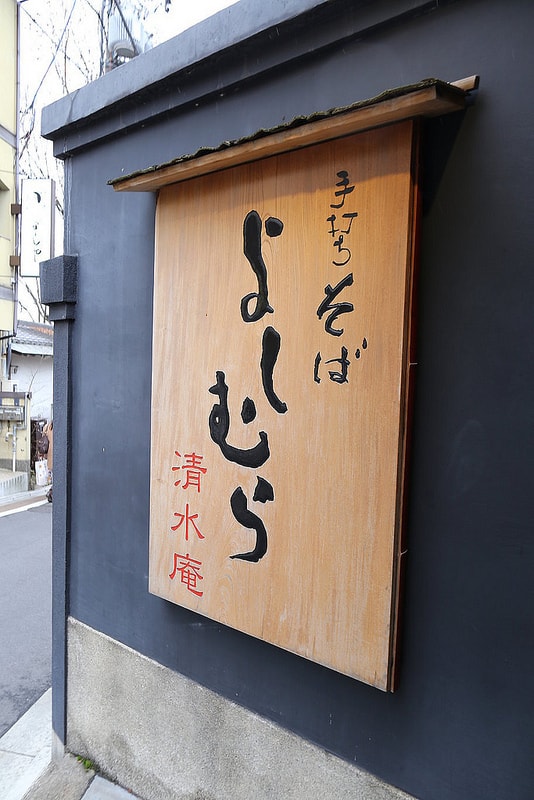 手打ち
そば
よしむら
清水庵